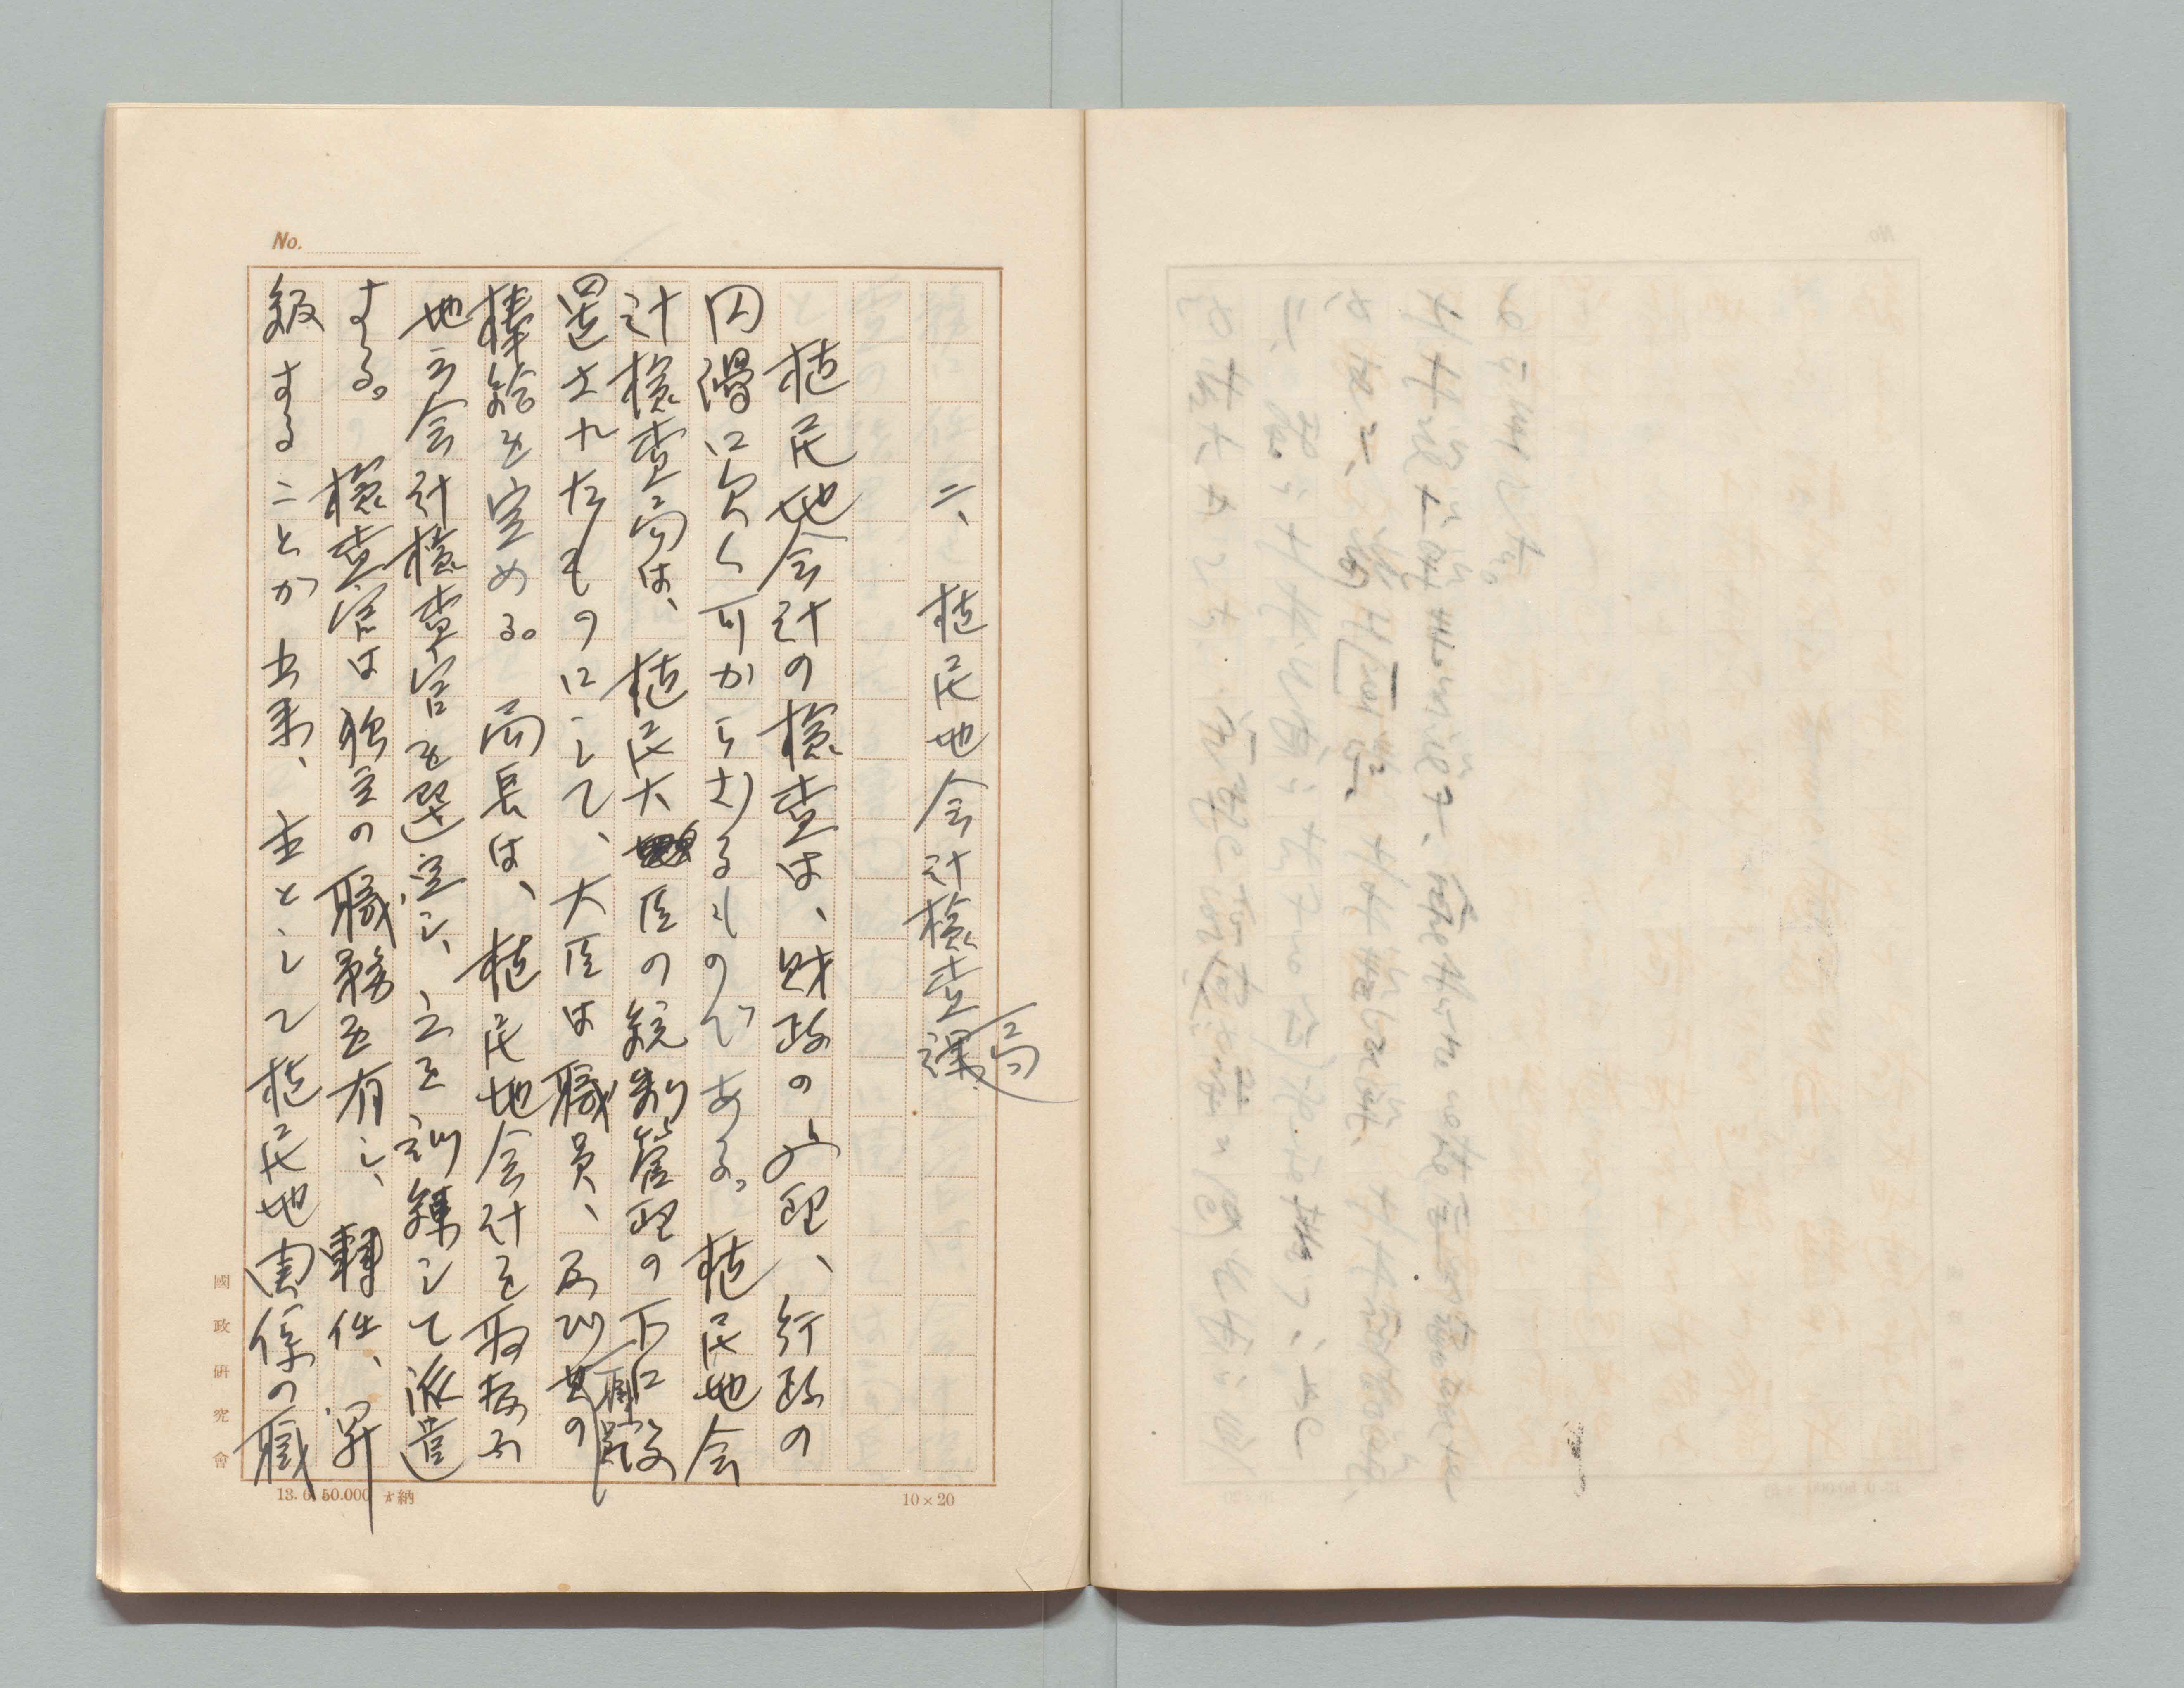 No.
二、植民地会計検査局
植民地会計の検査は、財政の処理、行政の
円滑に欠く可からざるものである。植民地会
計検査局は、植民大臣の統制管理の下に設
置されたものにして、大臣は職員、及び其の
俸給を定める。局長は、植民地会計を取扱ふ
地方会計検査官を選定し、之を訓錬して派遣
する。検査官は独立の職務を有し、轉任、昇
級することか出来、主として植民地関係の職
國政研究會
13. 6. 50.000 納
10×20